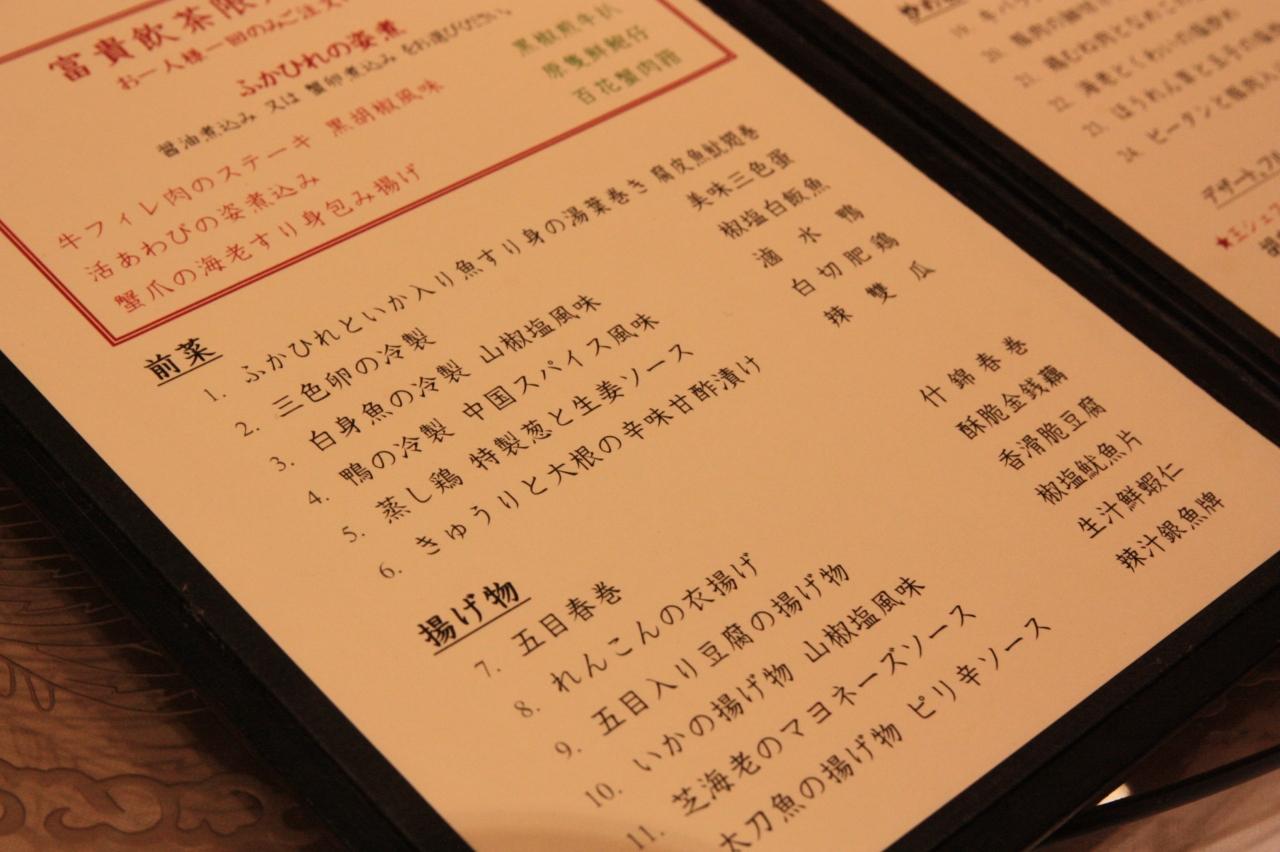 富貴飲茶限
お一人様一回のみご注文
ふかひれの姿煮
醤油煮込み 又は 蟹卵煮込み をお選びください。
牛フィレ肉のステーキ 黒胡椒風味 黒椒煎牛扒
活あわびの姿煮込み 原隻鮮鮑仔
蟹爪の海老すり身包み揚げ 百花蟹肉拑
前菜
1. ふかひれといか入り魚すり身の湯葉巻き 腐皮魚魷翅巻
2. 三色卵の冷製 美味三色蛋
3. 白身魚の冷製 山椒塩風味 椒塩白飯魚
4. 鴨の冷製 中国スパイス風味 滷水鴨
5. 蒸し鶏 特製葱と生姜ソース 白切肥鶏
6. きゅうりと大根の辛味甘酢漬け 辣雙瓜
揚げ物
7. 五目春巻 什錦春巻
8. れんこんの衣揚げ 酥脆金銭藕
9. 五目入り豆腐の揚げ物 香滑脆豆腐
10. いかの揚げ物 山椒塩風味 椒塩魷魚片
11. 芝海老のマヨネーズソース 生汁鮮蝦仁
太刀魚の揚げ物 ピリ辛ソース 辣汁銀魚牌
19.
20.
21.
22. 海老とくわいの塩炒め
23. ほうれん草と玉子の塩
24. ピータンと
デザート、フル